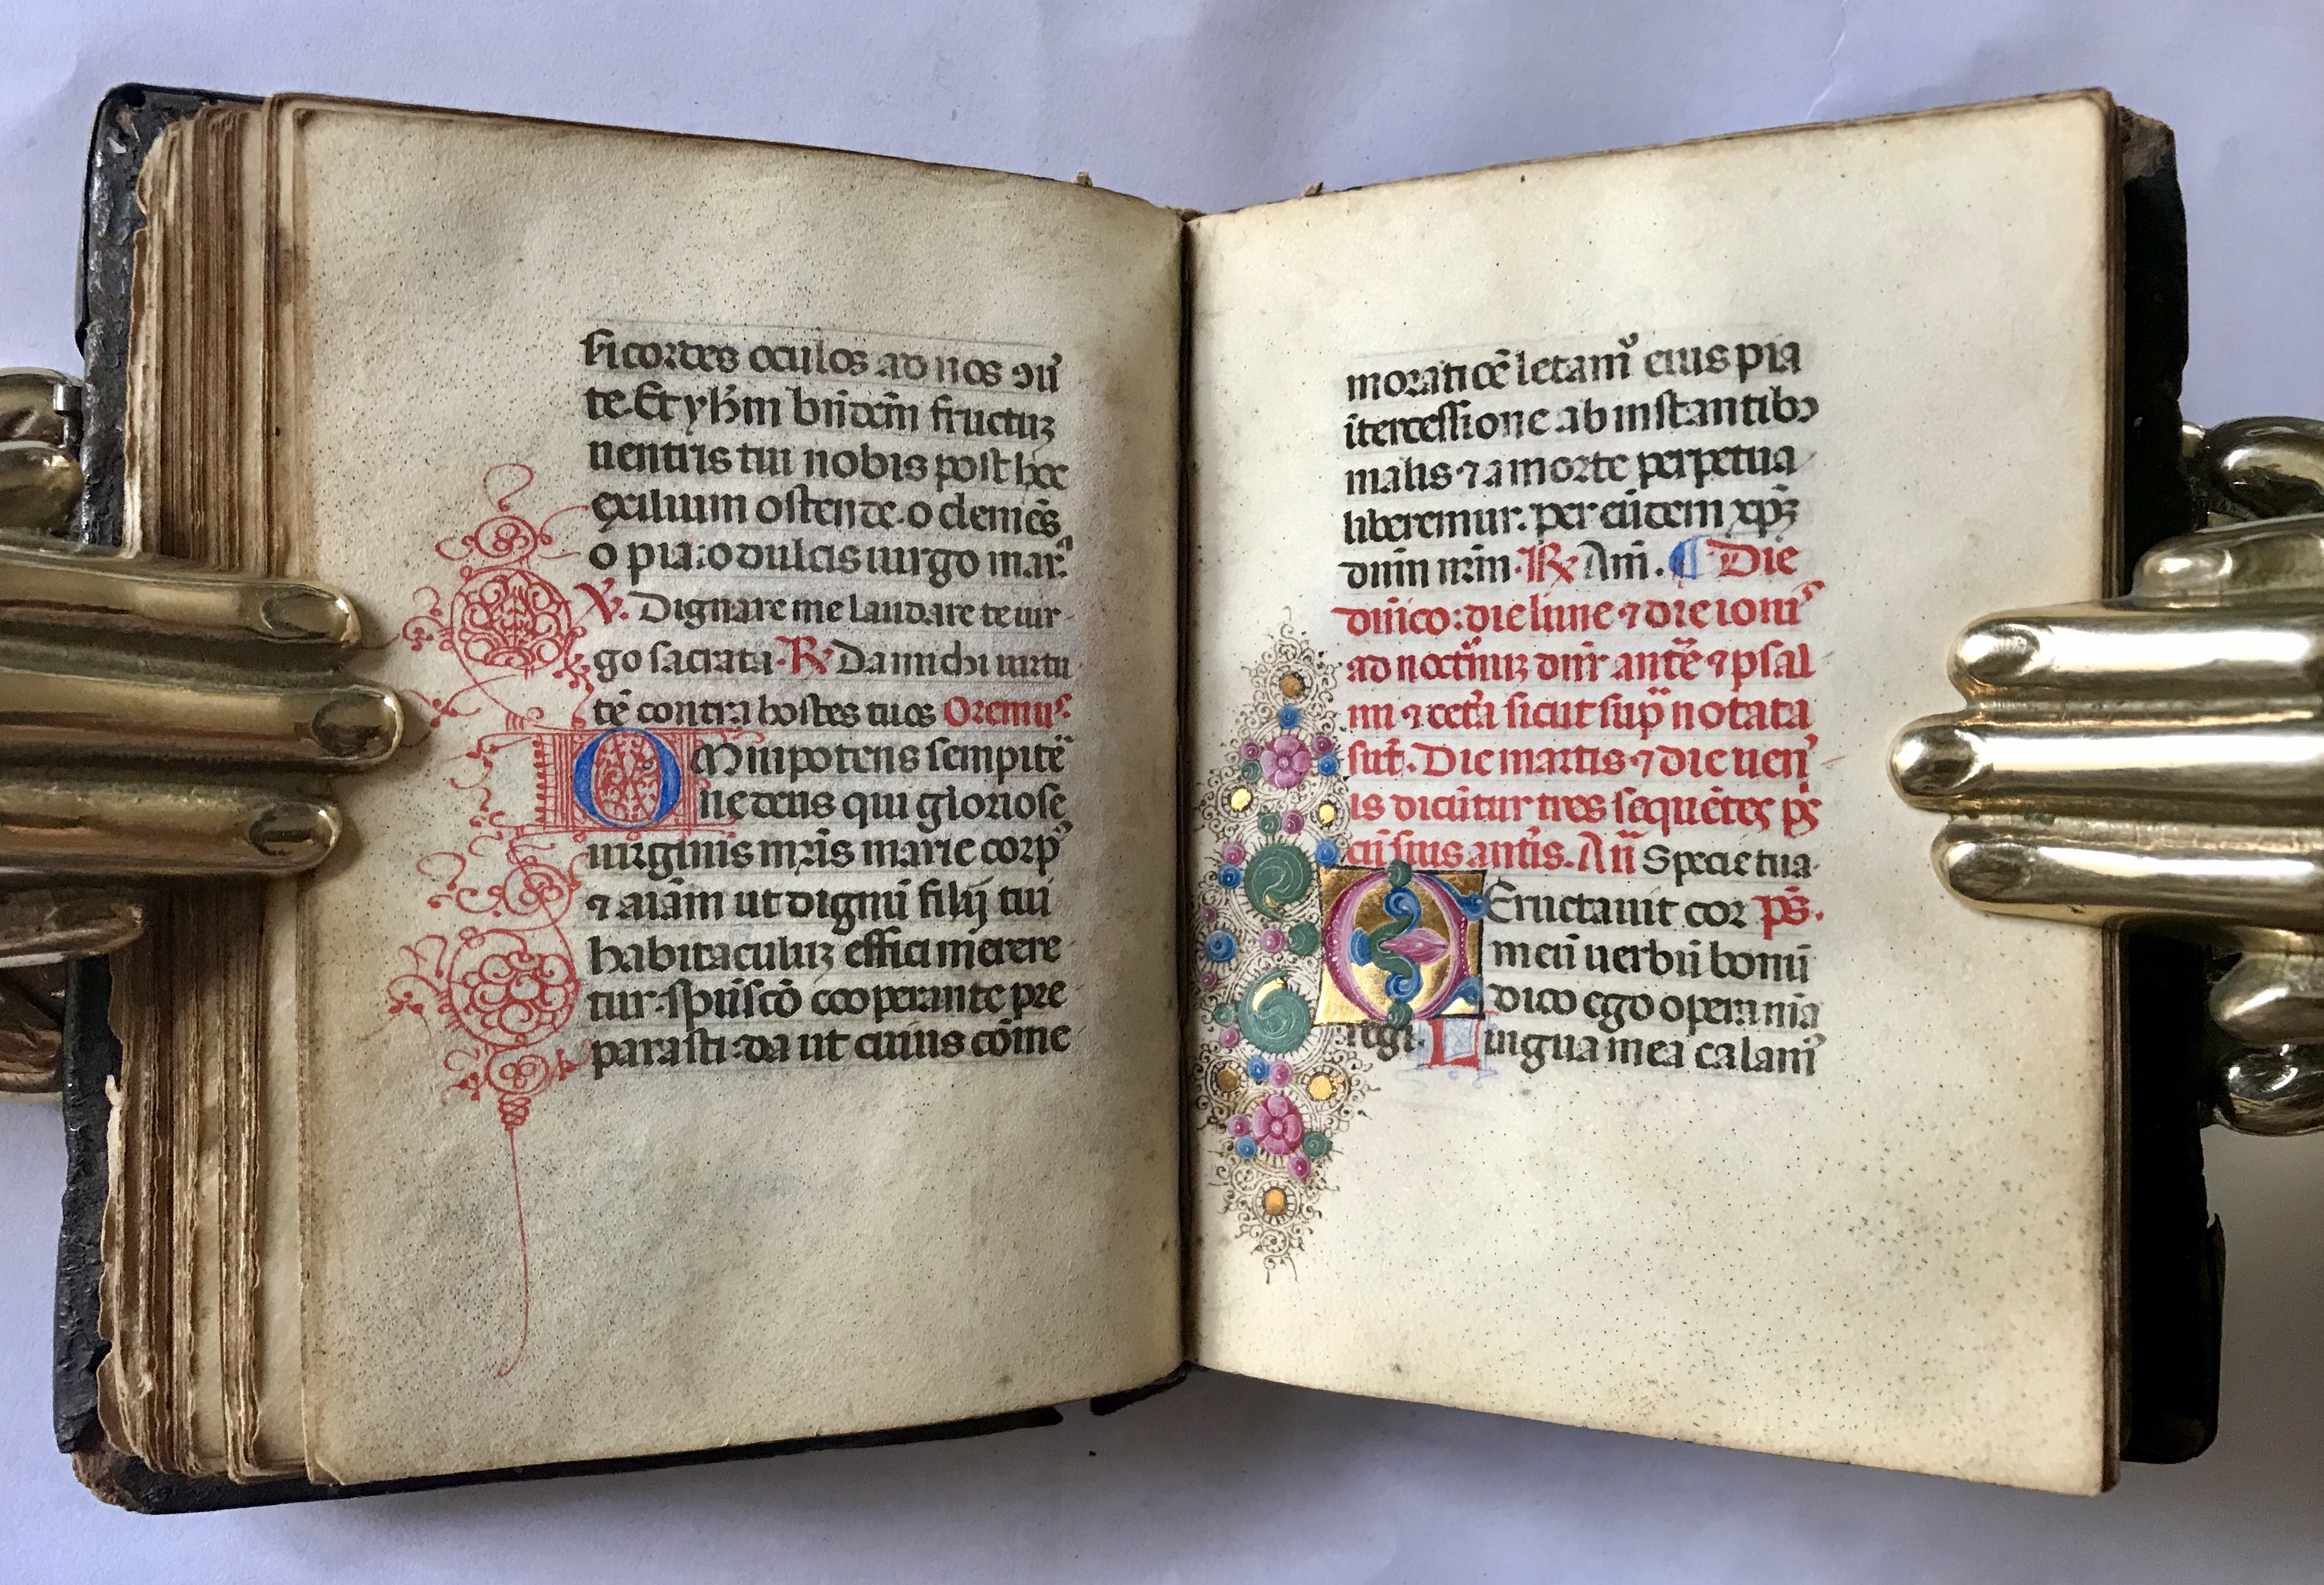 sicordes oculos ad nos ↄũ
te. Et yhm̄ bñdcm̄ fructuꝫ
uentris tui nobis post hoc
exilium ostende. o clemēs
o pia: o dulcis uirgo mar.ᵃ
℣. Dignare me laudare te uir
go sacrata. ℟ Da michi uirtu
tē contra hostes tuos Oremus
Omnipotens sempitē
ne deus qui gloriose
uirginis mr̄is marie corpꝰ
⁊ aīam ut dignū filij tui
habitaculuꝫ effici merere
tur. sp̄ū sc̄o cooperante pre
parasti: da ut cuius cōme
moratiōe letamᷣ eius pia
ītercessione ab instantibꝫ
malis ⁊ a morte perpetua
liberemur. per eūdem xp̄ꝫ
dnm̄ nr̄m. ℟ Am̄. ¶ Die
dn̄ico: die lune ⁊ die iouis
ad noct̄nuꝫ dn̄r ante ⁊ psal
mi ⁊ ceta sicut sup̄ notata
sūt. Die martis ⁊ die uen
is dicūtur tres sequētes ps̄
cū suis antis. Añ Specie tua
Eructauit cor ps̄.
meū uerbū bonū
dico ego opera mīa
regi. Lingua mea calamꝰ